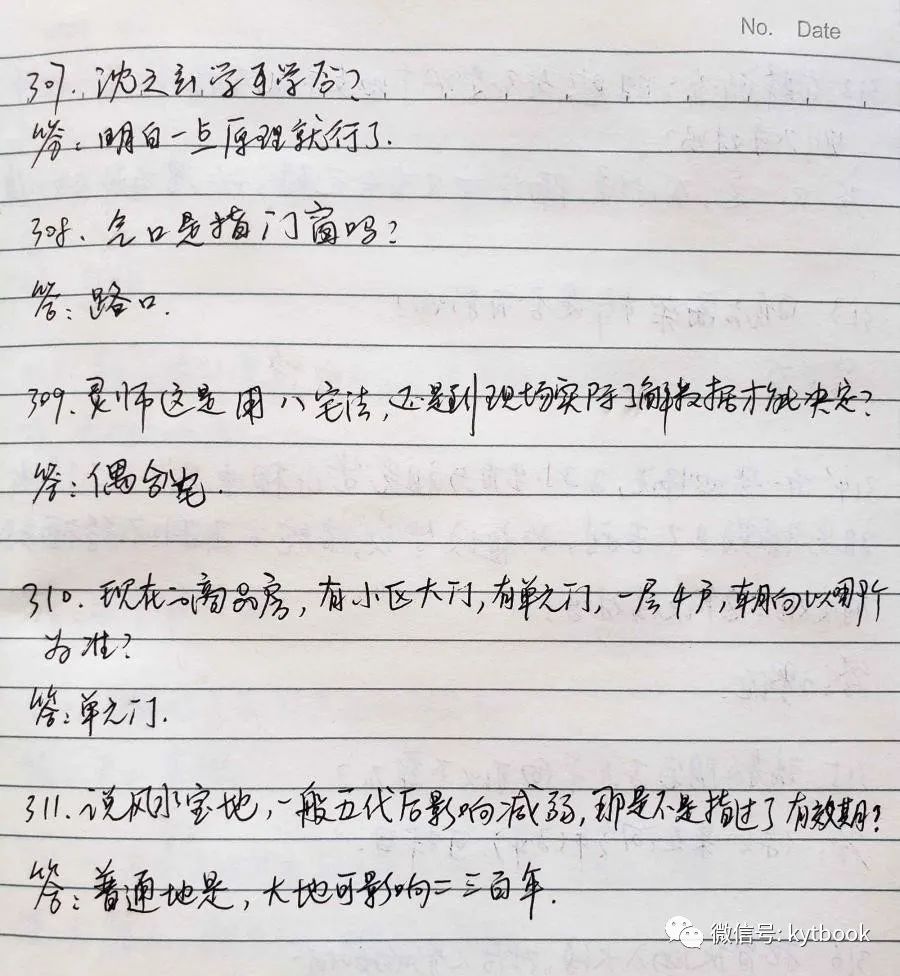 No. Date
307. 沈玄空学可学否?
答:明白一点原理就行了.
308. 气口是指门窗吗?
答:路口.
309. 灵师这是用八宅法,还是到现场实际了解数据才能决定?
答:偶合宅.
310. 现在的商品房,有小区大门,有单元门,一层4户,朝向以哪个
为准?
答:单元门.
311. 说风水宝地,一般五代后影响减弱,那是不是指过了有效期?
答:普通地是,大地可影响二三百年.
微信号: kytbook